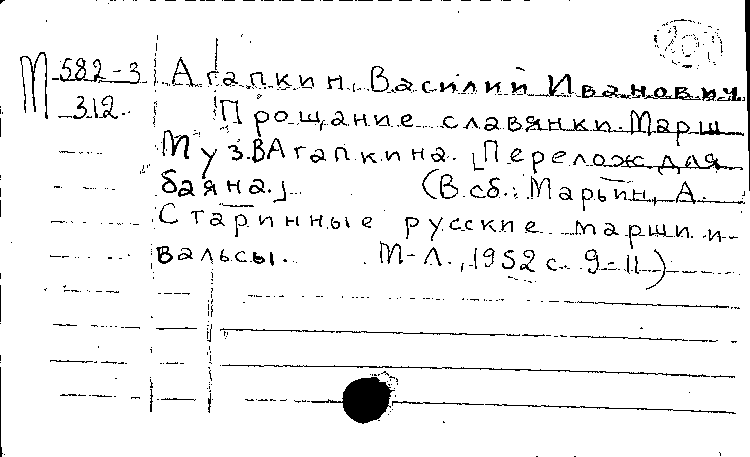 М 582-3 Агапкин, Василий Иванович.
312. Прощание славянки. Марш
Муз. В Агапкина. [Перелож. для
баяна.] (В сб.: Марьин, А.
Старинные русские марши и
вальсы. М-Л., 1952 с. 9-11)